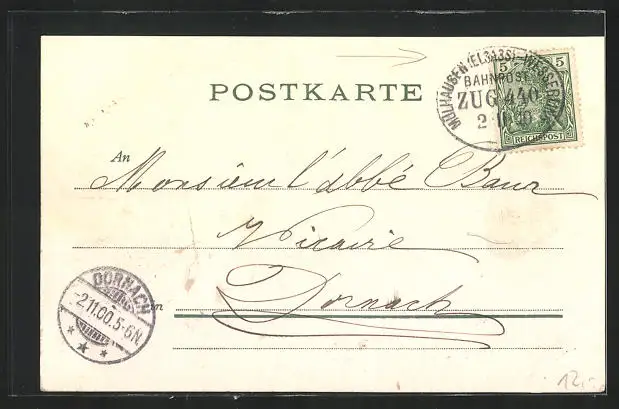 POSTKARTE
MÜLHAUSEN (ELSASS) - WESSERLING
BAHNPOST
ZUG 440
2 11 00
5 5
REICHSPOST
An Monsieur l'abbé Baur
Vicaire
in Dornach
DORNACH
-2.11.00.5-6N
12.-